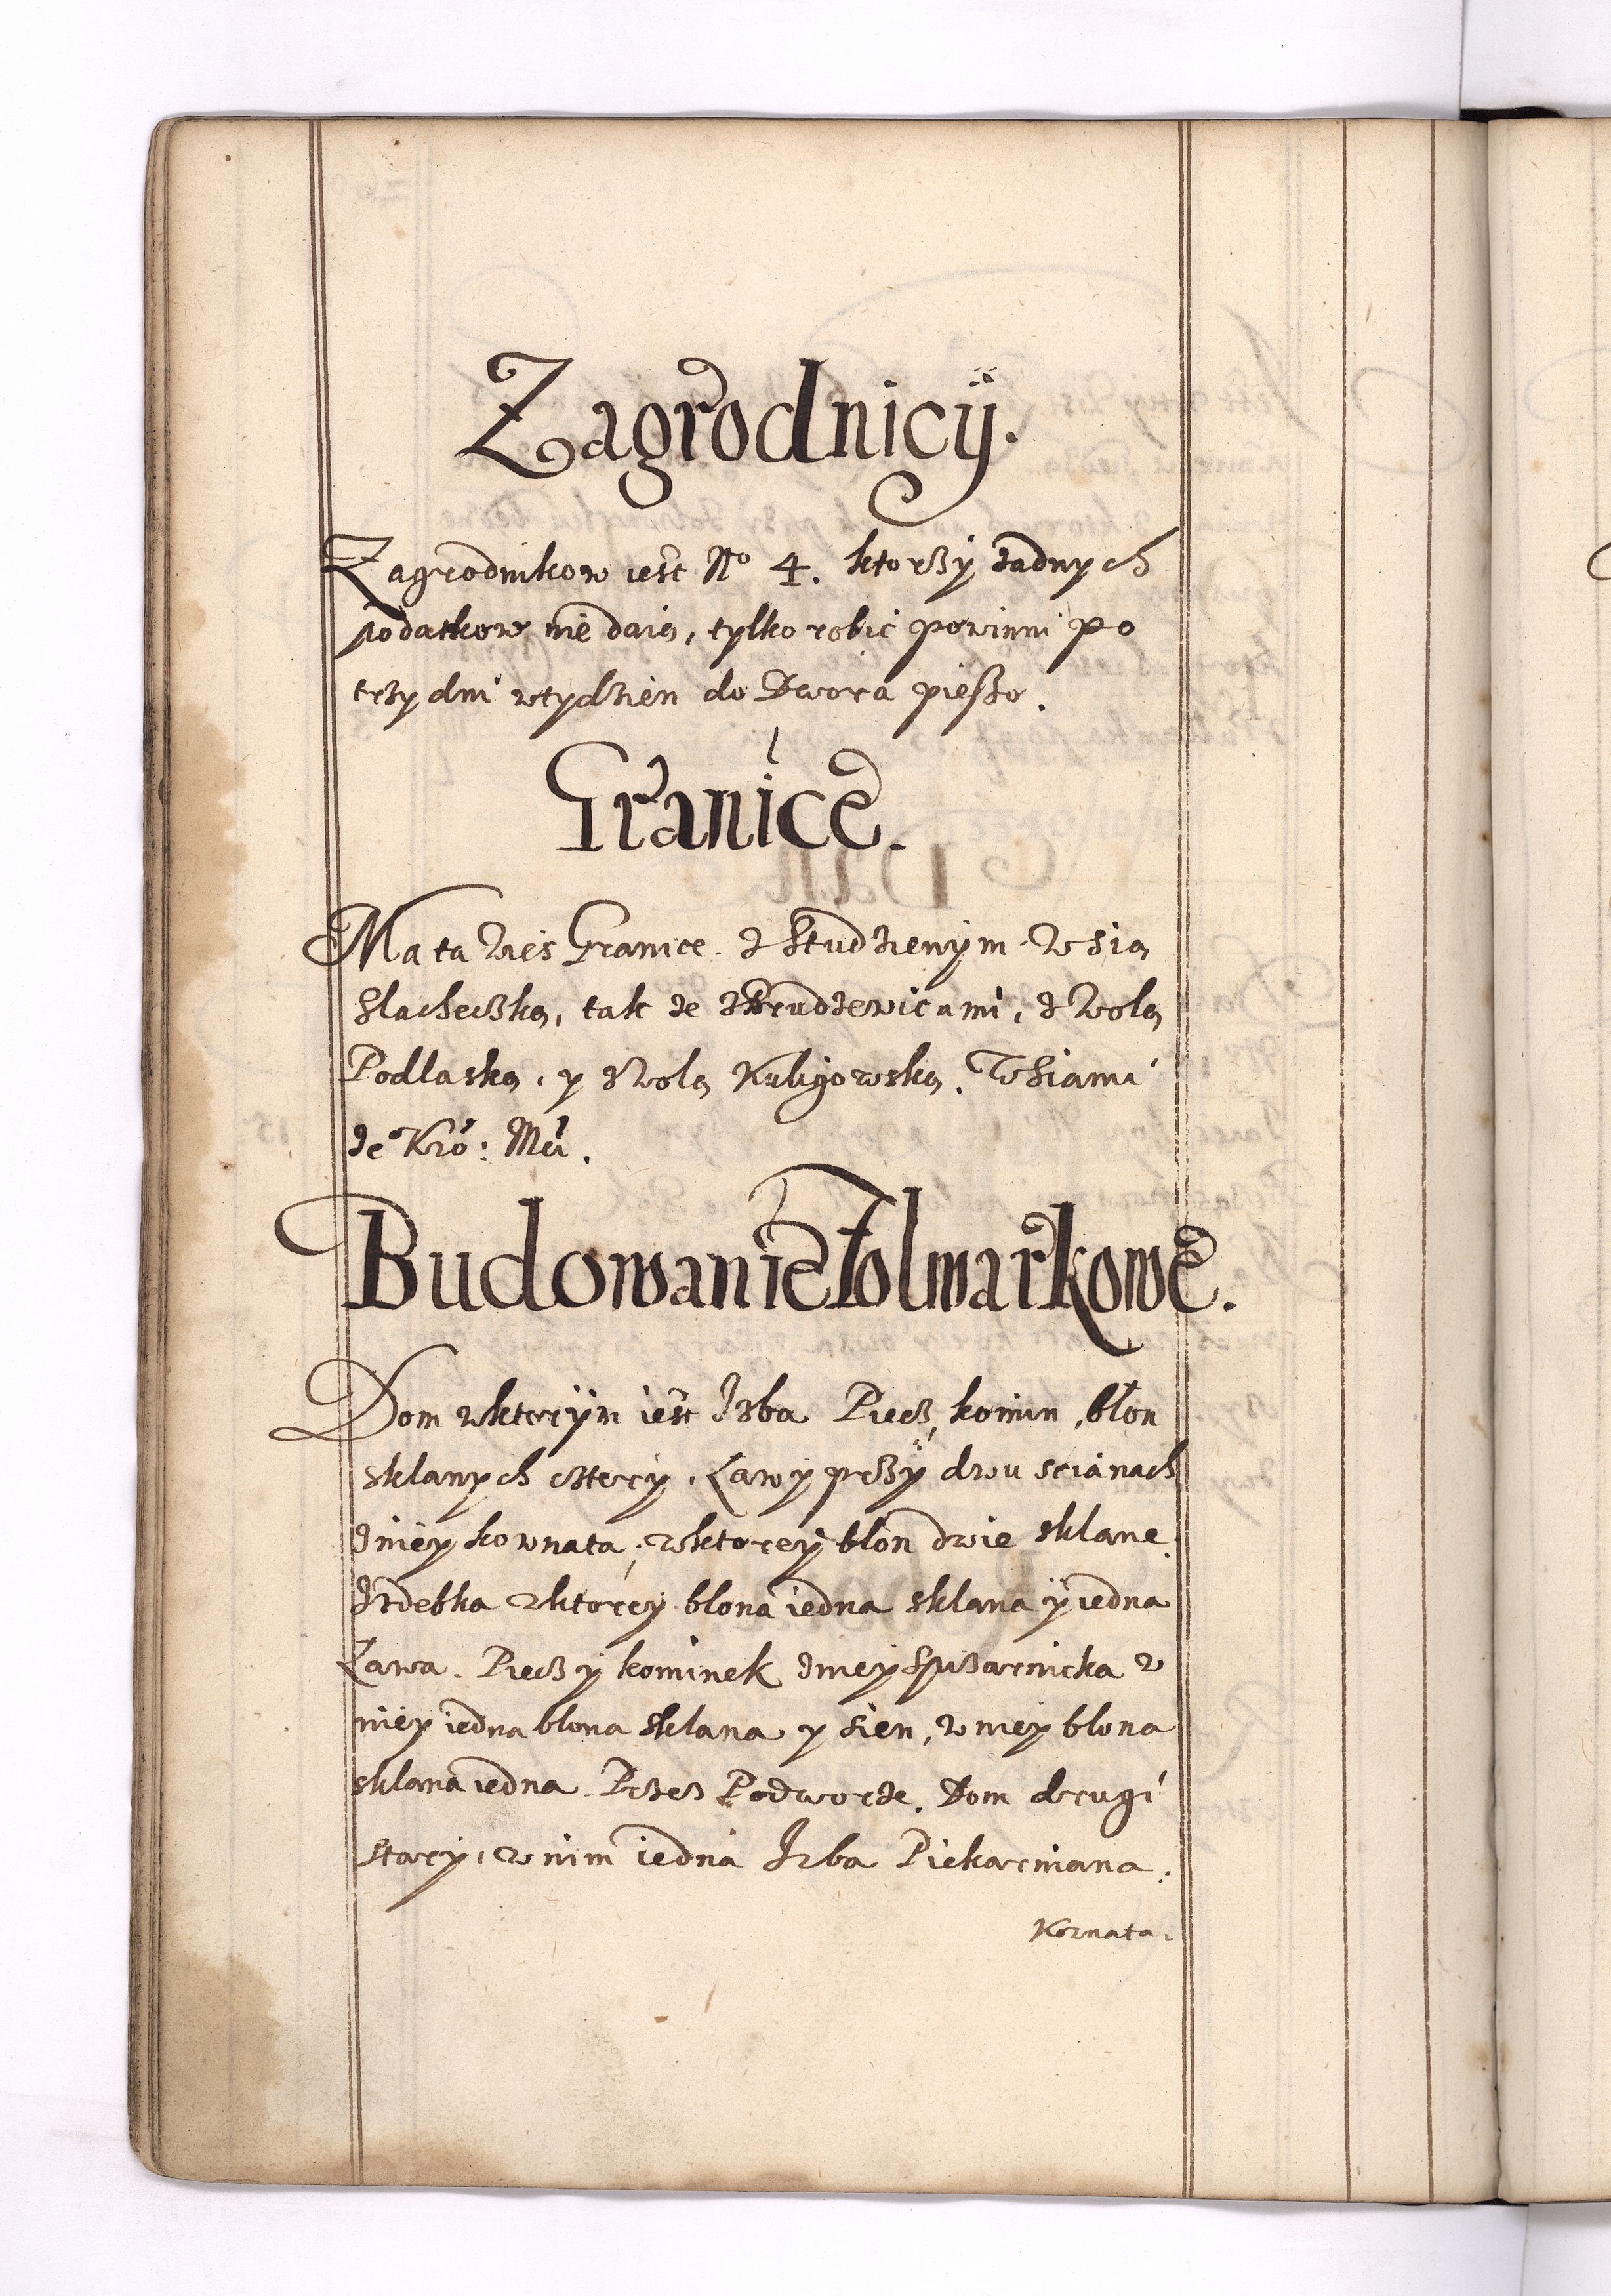 Zagrodnicÿ.
Zagrodnikow iest No 4. ktorzÿ zadnych
podatkow nie daią, tylko robic powinni po
trzy dni wtydzien do Dwora pieszo.
Granice.
Ma ta Wies Granice. z Studzienÿm Wsią
Slachecką, tak ze z Wolą
Podlaską, y zWolą Kuligowską. Wsiami
ze Kro: Mci.
Budowanie ffolwarkowe.
Dom wktorÿm iest Izba Piecz, komin, błon
sklanych czterÿ. Ławÿ przÿ dwu scianach
zniey kownata, wktoreÿ błon dwie sklane.
Izdebka wktoreÿ blona iedna sklana ÿ iedna
Ława. Piecz ÿ kominek zniey Spizarnicka w
niey iedna blona sklana y sien, w niey blona
sklana iedna. Przez Podworze. Dom drugi
starÿ, w nim iedna Izba Piekarniana.
Kownata.